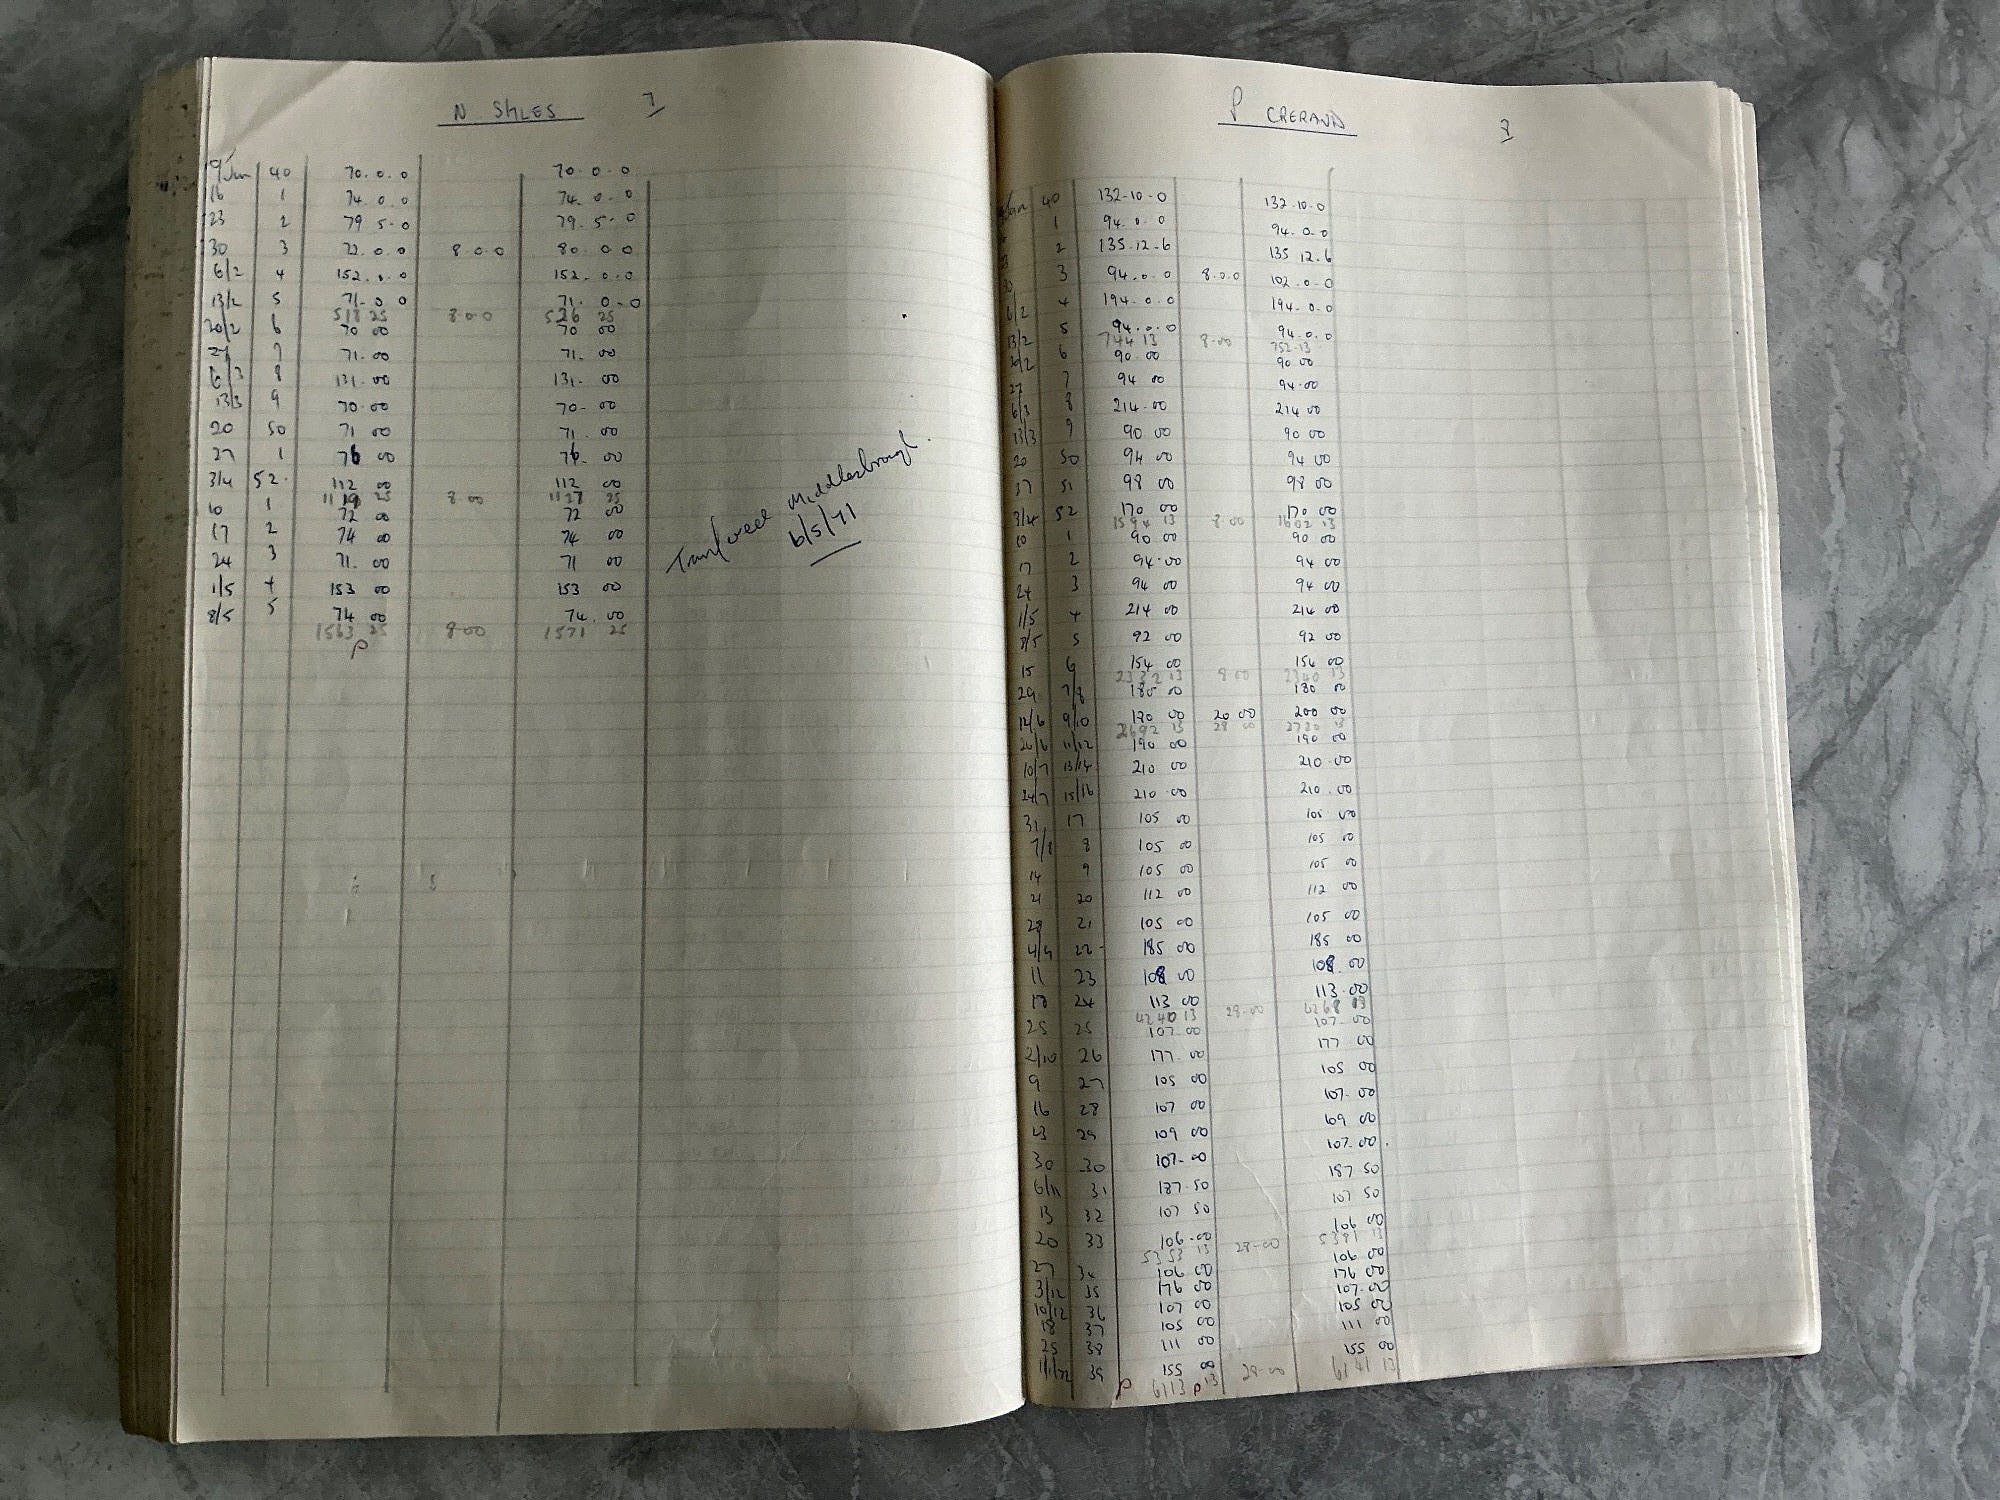 N STILES 7
9 Jan 40 70.0.0 70.0.0
16 1 74.0.0 74.0.0
23 2 79 5.0 79.5.0
30 3 72.0.0 8.0.0 80.0.0
6/2 4 152.0.0 152.0.0
13/2 5 71.0.0 71.0.0
518 25 8.00 526 25
20/2 6 70 00 70 00
27 7 71.00 71.00
6/3 8 131.00 131.00
13/3 9 70.00 70.00
20 50 71 00 71.00
27 1 76 00 76.00
3/4 52 112 00 112 00
1119 25 8 00 1127 25
10 1 72 00 72 00
17 2 74 00 74 00
24 3 71.00 71 00
1/5 4 153 00 153 00
8/5 5 74 00 74.00
1563 25 8 00 1571 25
P
Transferred Middlesbrough.
6/5/71
P CRERAND 8
Jan 40 132-10-0 132.10.0
1 94.0.0 94.0.0
2 135.12.6 135 12.6
3 94.0.0 8.0.0 102.0.0
6/2 4 194.0.0 194.0.0
13/2 5 94.0.0 94.0.0
744 13 8-00 752-13
20/2 6 90.00 90 00
27 7 94 00 94.00
6/3 8 214.00 214 00
13/3 9 90 00 90 00
20 50 94 00 94 00
27 51 98 00 98 00
3/4 52 170 00 170 00
1594 13 8.00 1602 13
10 1 90 00 90 00
17 2 94.00 94 00
24 3 94 00 94 00
1/5 4 214 00 214 00
8/5 5 92 00 92 00
15 6 154 00 154 00
2332 13 8 00 2340 13
29 7/8 180 00 180 00
12/6 9/10 180 00 20 00 200 00
2692 13 28 00 2720 13
26/6 11/12 190 00 190 00
10/7 13/14 210 00 210.00
24/7 15/16 210.00 210.00
31 17 105 00 105 00
7/8 8 105 00 105 00
14 9 105 00 105 00
21 20 112 00 112 00
28 21 105 00 105 00
4/9 22 185 00 185 00
11 23 108 00 108.00
18 24 113 00 113.00
4240 13 28-00 4268 13
25 25 107.00 107.00
2/10 26 177.00 177 00
9 27 105 00 105 00
16 28 107 00 107.00
23 29 109 00 109 00
30 30 107-00 107.00
6/11 31 187.50 187 50
13 32 107 50 107 50
20 33 106-00 106 00
5353 13 28-00 5381 13
27 34 106 00 106 00
3/12 35 176 00 176 00
10/12 36 107 00 107.00
18 37 105 00 105 00
25 38 111 00 111 00
1/1/72 39 155 00 155 00
P 6113 P 13 28-00 6141 13